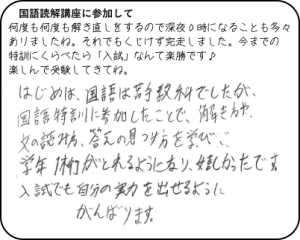 国語読解講座に参加して
何度も何度も解き直しをするので深夜０時になることも多々
ありましたね。それでもくじけず完走しました。今までの
特訓にくらべたら「入試」なんて楽勝です♪
楽しんで受験してきてね。
はじめは、国語は苦手教科でしたが、
国語特訓に参加したことで、解き方や、
文の読み方、答えの見つけ方を学び、
学年1桁がとれるようになり、嬉しかったです。
入試でも自分の実力を出せるように
がんばります。